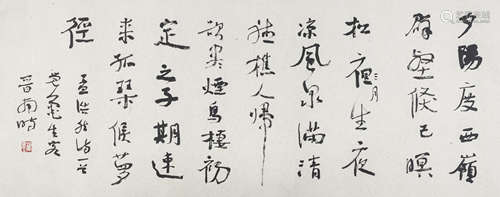 夕陽度西嶺
群壑倏已暝
松夜月生夜
涼風泉滿清
聽樵人歸
欲盡煙鳥棲初
定之子期速
來孤琴候蘿
徑
孟浩然詩一首